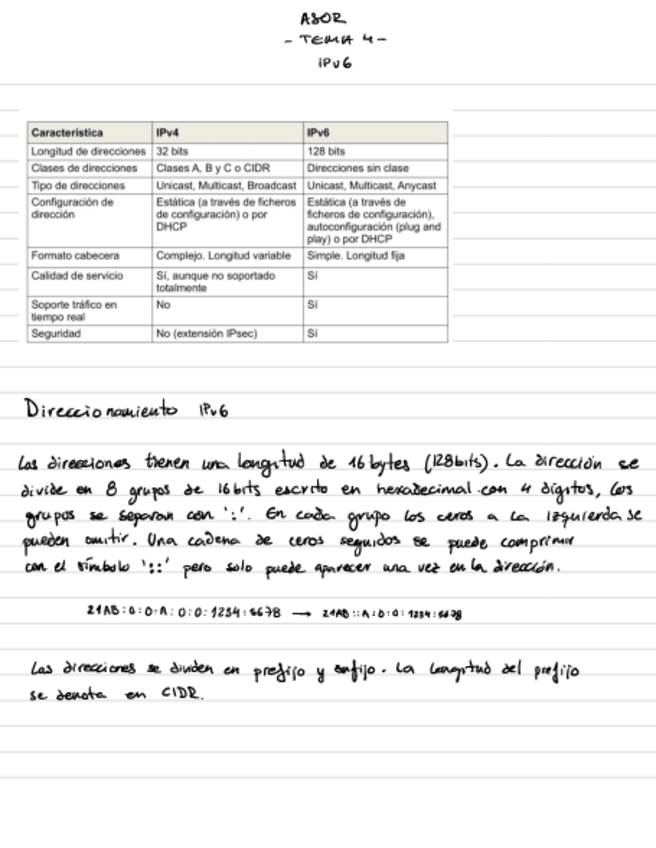 ASOR
- TEMA 4 -
IPv6
Característica IPv4 IPv6
Longitud de direcciones 32 bits 128 bits
Clases de direcciones Clases A, B y C o CIDR Direcciones sin clase
Tipo de direcciones Unicast, Multicast, Broadcast Unicast, Multicast, Anycast
Configuración de dirección Estática (a través de ficheros de configuración) o por DHCP Estática (a través de ficheros de configuración), autoconfiguración (plug and play) o por DHCP
Formato cabecera Complejo. Longitud variable Simple. Longitud fija
Calidad de servicio Sí, aunque no soportado totalmente Sí
Soporte tráfico en tiempo real No Sí
Seguridad No (extensión IPsec) Sí
Direccionamiento IPv6
Las direcciones tienen una longitud de 16 bytes (128bits). La dirección se
divide en 8 grupos de 16 bits escrito en hexadecimal con 4 dígitos, los
grupos se separan con ':'. En cada grupo los ceros a la izquierda se
pueden omitir. Una cadena de ceros seguidos se puede comprimir
con el símbolo '::' pero solo puede aparecer una vez en la dirección.
21AB:0:0:A:0:0:1234:5678 → 21AB::A:0:0:1234:5678
Las direcciones se dividen en prefijo y sufijo. La longitud del prefijo
se denota en CIDR.